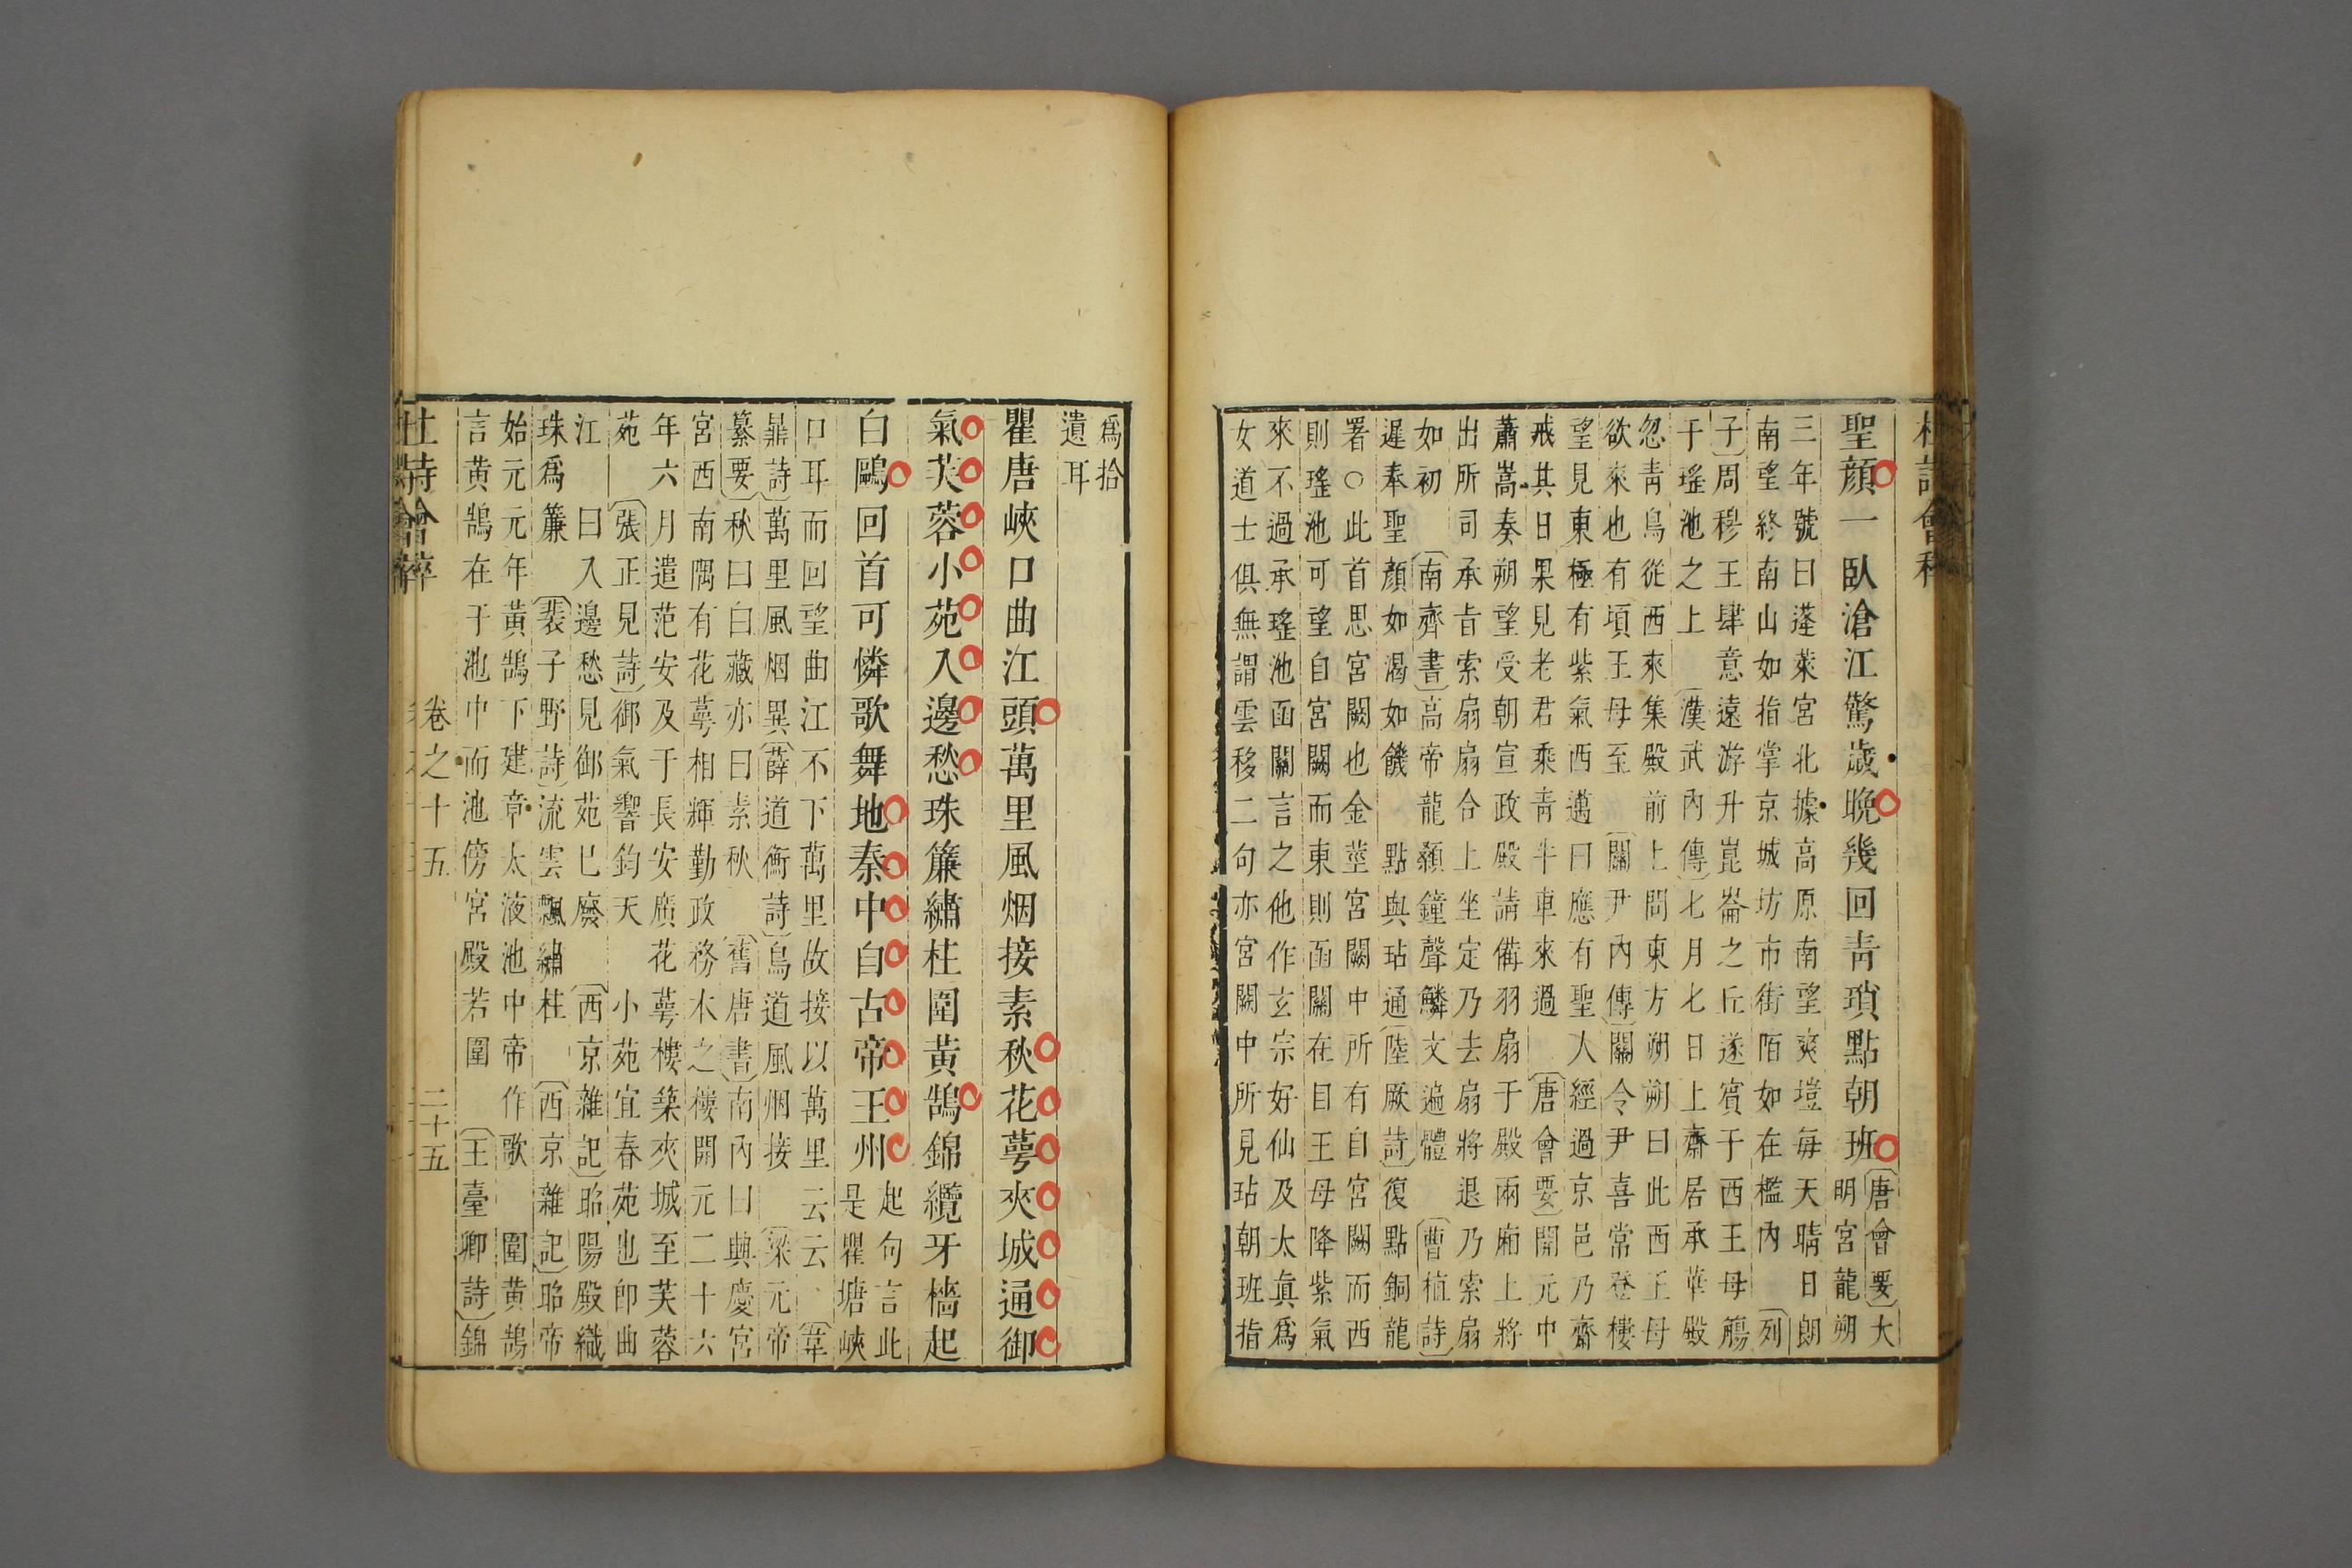 聖顔一臥滄江驚歲晚幾回青瑣點朝班
〔唐會要〕大
明宮龍朔
三年號曰蓬萊宮北據高原南望爽塏每天晴日朗
南望終南山如指掌京城坊市街陌如在檻內〔列
子〕周穆王肆意遠游升崑崙之丘遂賓于西王母觴
于瑤池之上〔漢武內傳〕七月七日上齋居承華殿
忽青鳥從西來集殿前上問東方朔朔曰此西王母
欲來也有頃王母至〔關尹內傳〕關令尹喜常登樓
望見東極有紫氣西邁曰應有聖人經過京邑乃齋
戒其日果見老君乘青牛車來過〔唐會要〕開元中
蕭嵩奏朔望受朝宣政殿請備羽扇于殿兩廂上將
出所司承旨索扇扇合上坐定乃去扇將退乃索扇
如初〔南齊書〕高帝龍顙鐘聲鱗文遍體〔曹植詩〕
遲奉聖顔如渴如饑 點與玷通〔陸厥詩〕復點銅龍
署○此首思宮闕也金莖宮闕中所有自宮闕而西
則瑤池可望自宮闕而東則函關在目王母降紫氣
來不過承瑤池函關言之他作玄宗好仙及太眞爲
女道士俱無謂雲移二句亦宮闕中所見玷朝班指
爲拾
遺耳
瞿唐峽口曲江頭萬里風烟接素秋花萼夾城通御
氣芙蓉小苑入邊愁珠簾繡柱圍黃鵠錦纜牙檣起
白鷗回首可憐歌舞地秦中自古帝王州
起句言此
是瞿塘峽
口耳而回望曲江不下萬里故接以萬里云云〔韋
鼎詩〕萬里風烟異〔薛道衡詩〕鳥道風烟接〔梁元帝
纂要〕秋曰白藏亦曰素秋〔舊唐書〕南內曰興慶宮
宮西南隅有花萼相輝勤政務本之樓開元二十六
年六月遣范安及于長安廣花萼樓築夾城至芙蓉
苑〔張正見詩〕御氣響鈞天 小苑宜春苑也即曲
江 曰入邊愁見御苑已廢〔西京雜記〕昭陽殿織
珠爲簾〔裴子野詩〕流雲飄繡柱〔西京雜記〕昭帝
始元元年黃鵠下建章太液池中帝作歌 圍黃鵠
言黃鵠在于池中而池傍宮殿若圍〔王臺卿詩〕錦
杜詩會稡 卷之十五 二十五